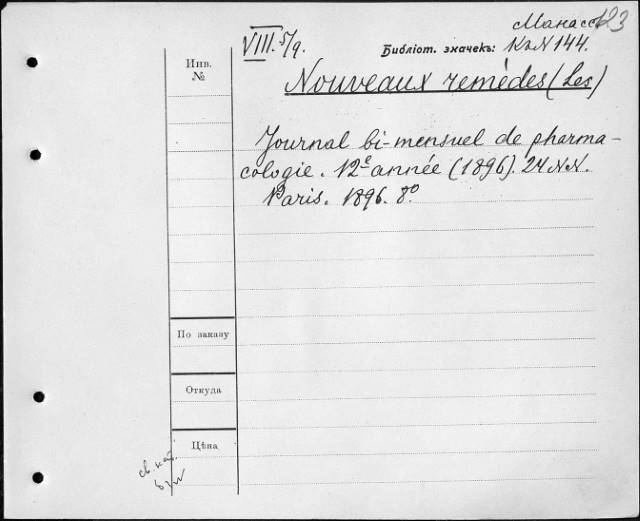 Манасс 123
VIII. 5/9.
Библіот. значекъ: КзN 144.
Инв.
№
Nouveaux remèdes (Les)
Journal bi-mensuel de pharma-
cologie. 12e année (1896). 24 N.N.
Paris. 1896. 8o.
По заказу
Откуда
Цѣна
св. кат.